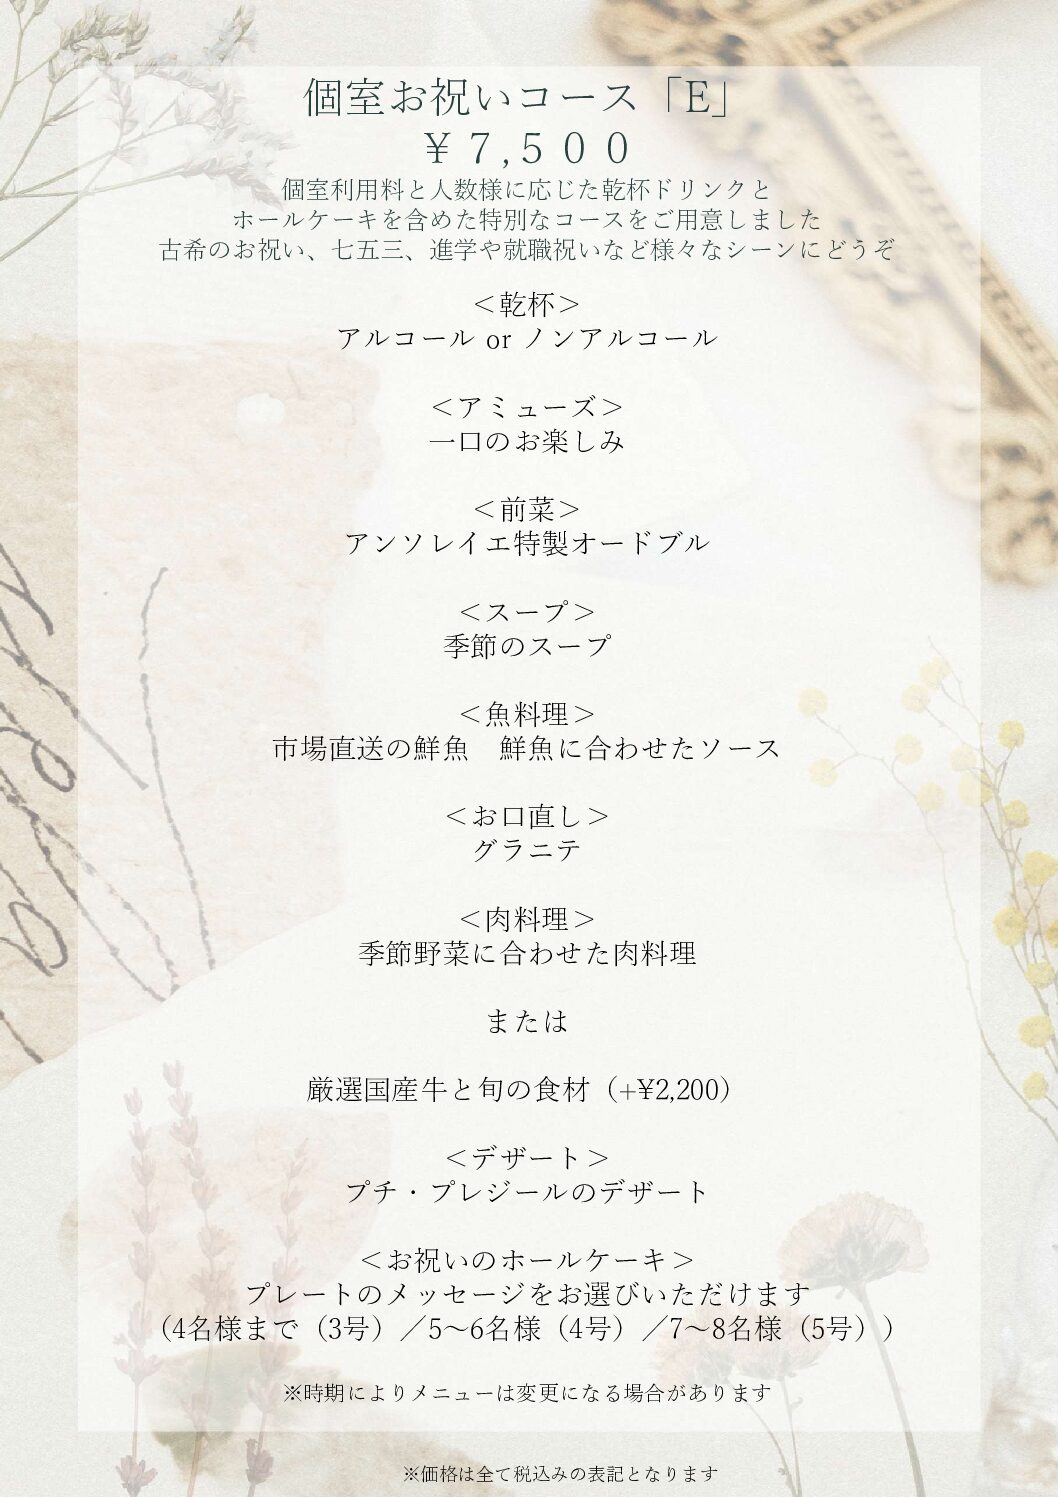 個室お祝いコース「E」
￥７,５００
個室利用料と人数様に応じた乾杯ドリンクと
ホールケーキを含めた特別なコースをご用意しました
古希のお祝い、七五三、進学や就職祝いなど様々なシーンにどうぞ
＜乾杯＞
アルコール or ノンアルコール
＜アミューズ＞
一口のお楽しみ
＜前菜＞
アンソレイエ特製オードブル
＜スープ＞
季節のスープ
＜魚料理＞
市場直送の鮮魚　鮮魚に合わせたソース
＜お口直し＞
グラニテ
＜肉料理＞
季節野菜に合わせた肉料理
または
厳選国産牛と旬の食材（+¥2,200）
＜デザート＞
プチ・プレジールのデザート
＜お祝いのホールケーキ＞
プレートのメッセージをお選びいただけます
（4名様まで（3号）／5～6名様（4号）／7～8名様（5号））
※時期によりメニューは変更になる場合があります
※価格は全て税込みの表記となります